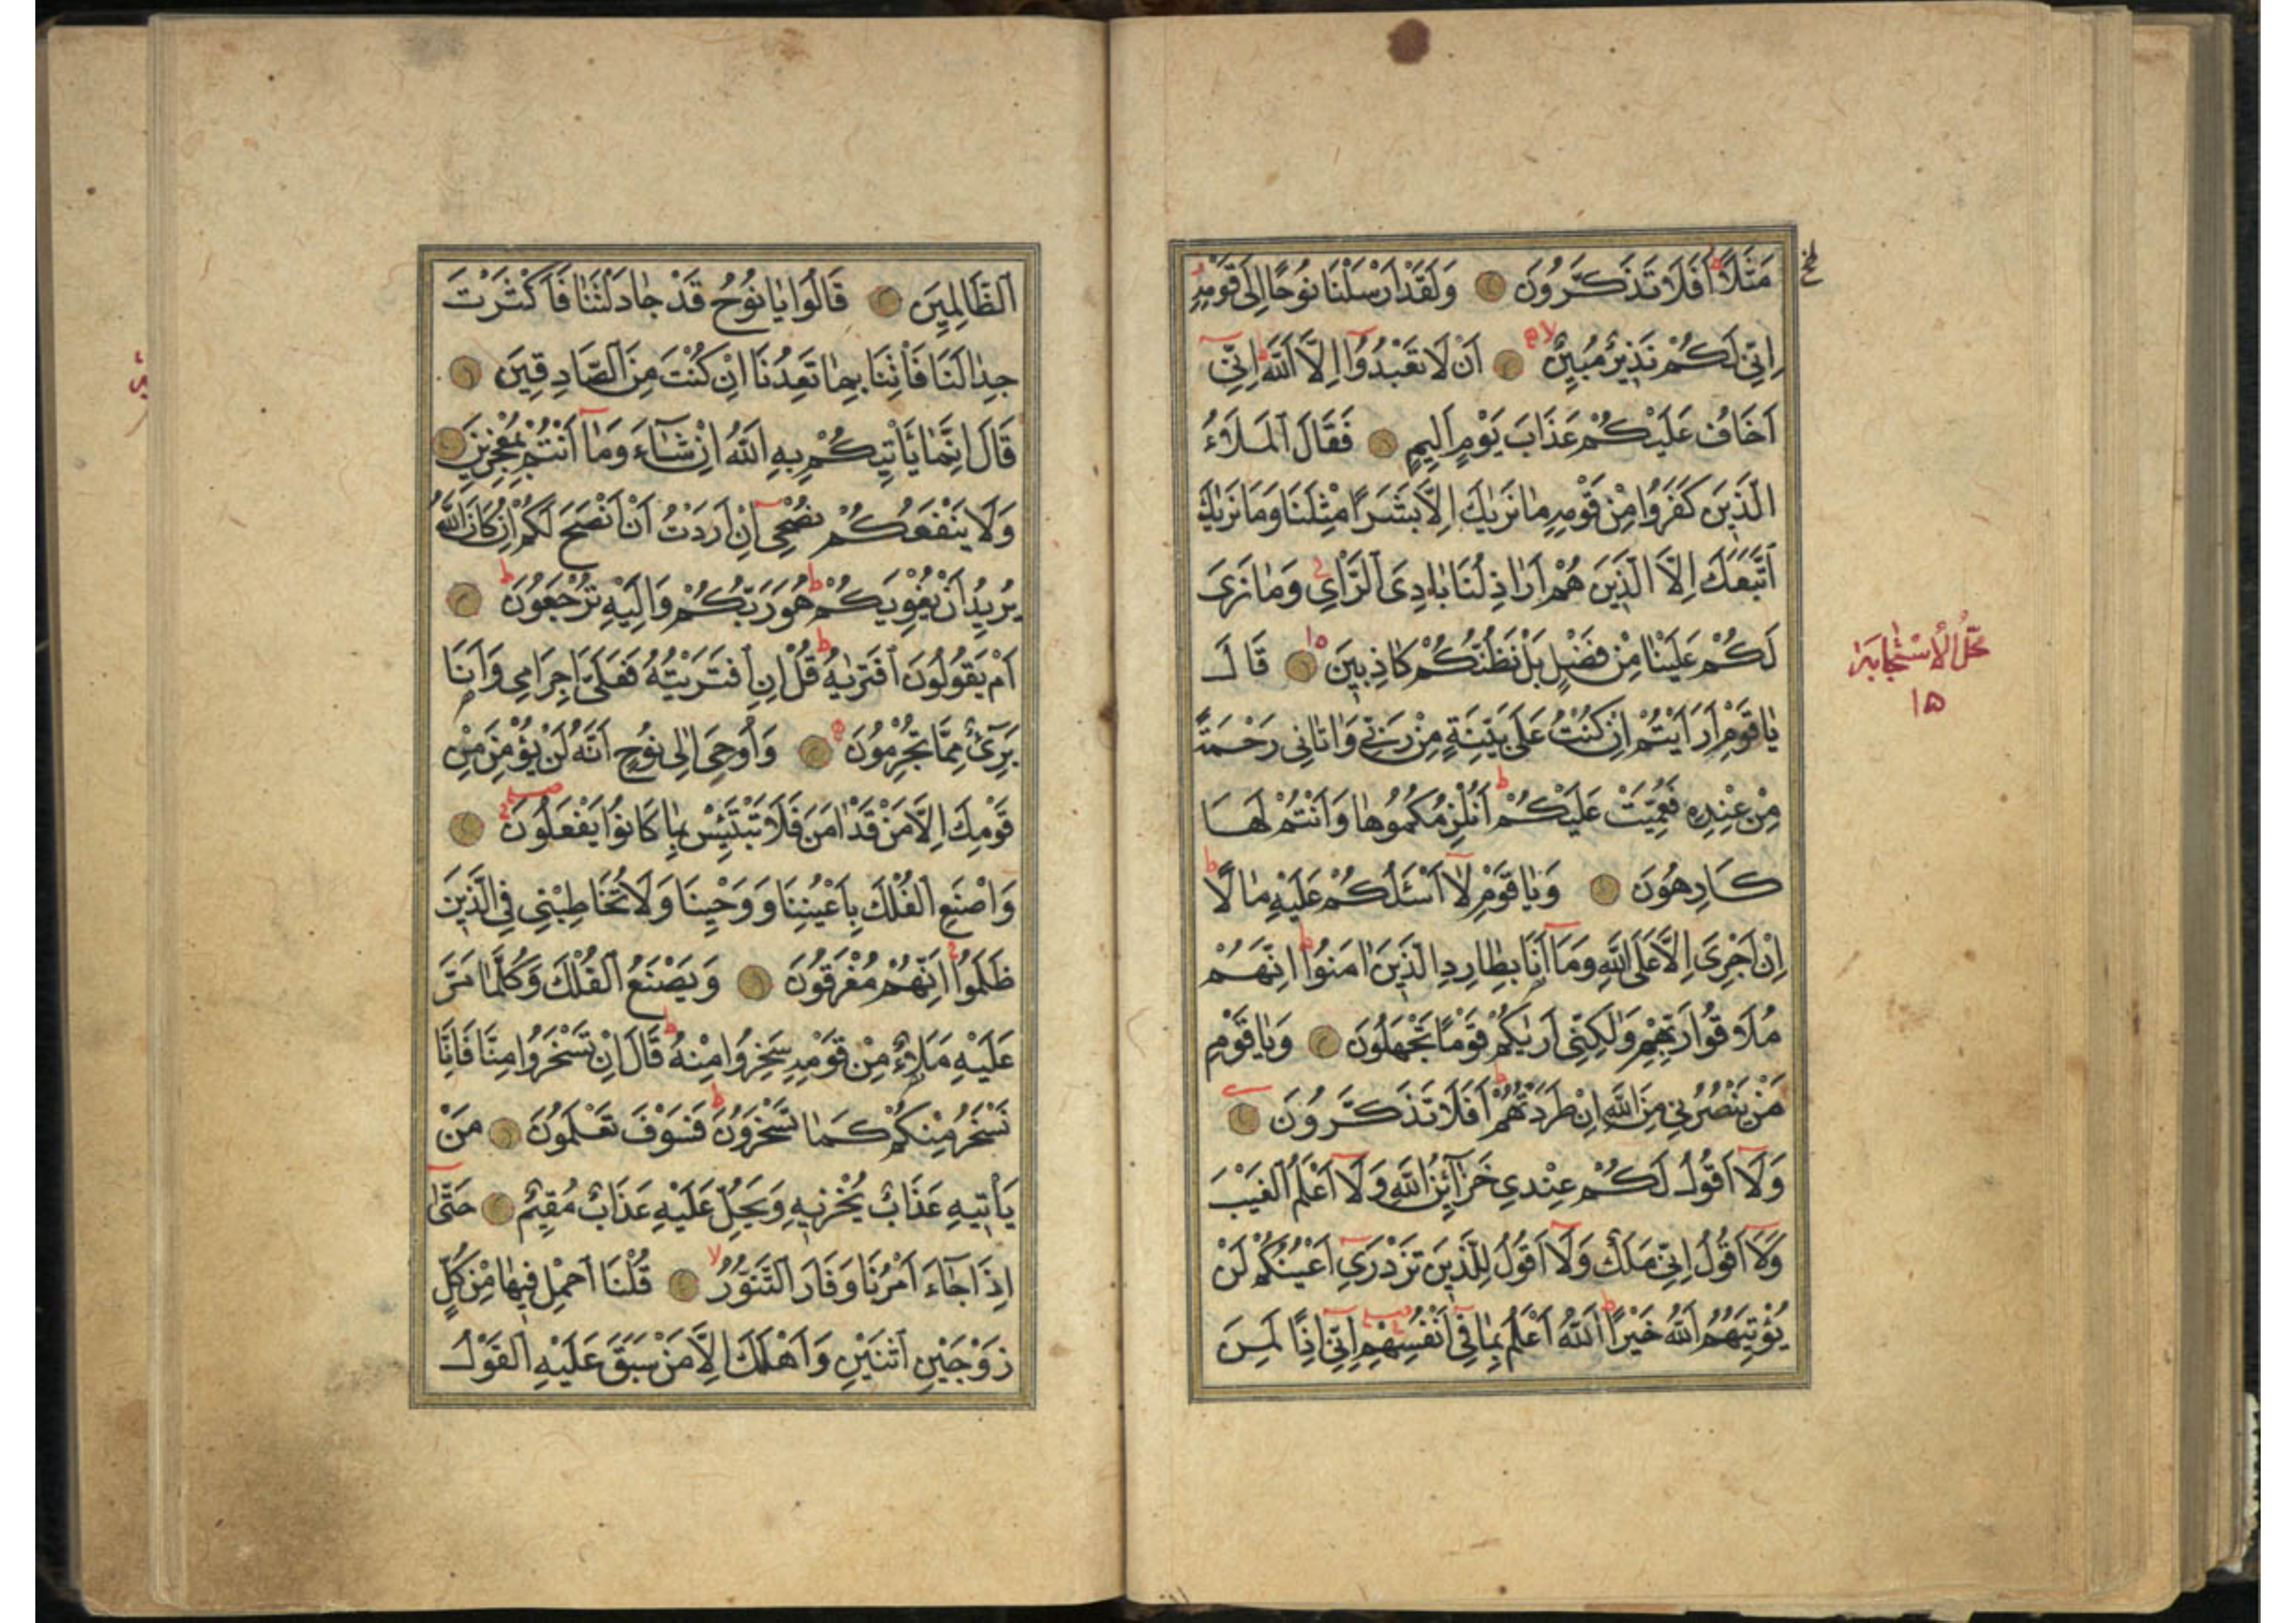 مَثَلًا اَفَلَا تَذَكَّرُونَ وَلَقَدْ اَرْسَلْنَا نُوحًا اِلٰى قَوْمِهِ
اِنِّي لَكُمْ نَذِيرٌ مُبِينٌ اَنْ لَا تَعْبُدُوا اِلَّا اللّٰهَ اِنِّي
اَخَافُ عَلَيْكُمْ عَذَابَ يَوْمٍ اَلِيمٍ فَقَالَ الْمَلَاُ
الَّذِينَ كَفَرُوا مِنْ قَوْمِهِ مَا نَرٰيكَ اِلَّا بَشَرًا مِثْلَنَا وَمَا نَرٰيكَ
اتَّبَعَكَ اِلَّا الَّذِينَ هُمْ اَرَاذِلُنَا بَادِيَ الرَّاْيِ وَمَا نَرٰى
لَكُمْ عَلَيْنَا مِنْ فَضْلٍ بَلْ نَظُنُّكُمْ كَاذِبِينَ قَالَ
يَا قَوْمِ اَرَاَيْتُمْ اِنْ كُنْتُ عَلٰى بَيِّنَةٍ مِنْ رَبِّي وَاٰتَانِي رَحْمَةً
مِنْ عِنْدِهِ فَعُمِّيَتْ عَلَيْكُمْ اَنُلْزِمُكُمُوهَا وَاَنْتُمْ لَهَا
كَارِهُونَ وَيَا قَوْمِ لَا اَسْئَلُكُمْ عَلَيْهِ مَالًا
اِنْ اَجْرِيَ اِلَّا عَلَى اللّٰهِ وَمَا اَنَا بِطَارِدِ الَّذِينَ اٰمَنُوا اِنَّهُمْ
مُلَاقُوا رَبِّهِمْ وَلٰكِنِّي اَرٰيكُمْ قَوْمًا تَجْهَلُونَ وَيَا قَوْمِ
مَنْ يَنْصُرُنِي مِنَ اللّٰهِ اِنْ طَرَدْتُهُمْ اَفَلَا تَذَكَّرُونَ
وَلَا اَقُولُ لَكُمْ عِنْدِي خَزَائِنُ اللّٰهِ وَلَا اَعْلَمُ الْغَيْبَ
وَلَا اَقُولُ اِنِّي مَلَكٌ وَلَا اَقُولُ لِلَّذِينَ تَزْدَرِي اَعْيُنُكُمْ لَنْ
يُؤْتِيَهُمُ اللّٰهُ خَيْرًا اَللّٰهُ اَعْلَمُ بِمَا فِي اَنْفُسِهِمْ اِنِّي اِذًا لَمِنَ
١٥
الظَّالِمِينَ قَالُوا يَا نُوحُ قَدْ جَادَلْتَنَا فَاَكْثَرْتَ
جِدَالَنَا فَاْتِنَا بِمَا تَعِدُنَا اِنْ كُنْتَ مِنَ الصَّادِقِينَ
قَالَ اِنَّمَا يَاْتِيكُمْ بِهِ اللّٰهُ اِنْ شَاءَ وَمَا اَنْتُمْ بِمُعْجِزِينَ
وَلَا يَنْفَعُكُمْ نُصْحِي اِنْ اَرَدْتُ اَنْ اَنْصَحَ لَكُمْ اِنْ كَانَ اللّٰهُ
يُرِيدُ اَنْ يُغْوِيَكُمْ هُوَ رَبُّكُمْ وَاِلَيْهِ تُرْجَعُونَ
اَمْ يَقُولُونَ افْتَرٰيهُ قُلْ اِنِ افْتَرَيْتُهُ فَعَلَيَّ اِجْرَامِي وَاَنَا
بَرِيءٌ مِمَّا تُجْرِمُونَ وَاُوحِيَ اِلٰى نُوحٍ اَنَّهُ لَنْ يُؤْمِنَ مِنْ
قَوْمِكَ اِلَّا مَنْ قَدْ اٰمَنَ فَلَا تَبْتَئِسْ بِمَا كَانُوا يَفْعَلُونَ
وَاصْنَعِ الْفُلْكَ بِاَعْيُنِنَا وَوَحْيِنَا وَلَا تُخَاطِبْنِي فِي الَّذِينَ
ظَلَمُوا اِنَّهُمْ مُغْرَقُونَ وَيَصْنَعُ الْفُلْكَ وَكُلَّمَا مَرَّ
عَلَيْهِ مَلَاٌ مِنْ قَوْمِهِ سَخِرُوا مِنْهُ قَالَ اِنْ تَسْخَرُوا مِنَّا فَاِنَّا
نَسْخَرُ مِنْكُمْ كَمَا تَسْخَرُونَ فَسَوْفَ تَعْلَمُونَ مَنْ
يَاْتِيهِ عَذَابٌ يُخْزِيهِ وَيَحِلُّ عَلَيْهِ عَذَابٌ مُقِيمٌ حَتّٰى
اِذَا جَاءَ اَمْرُنَا وَفَارَ التَّنُّورُ قُلْنَا احْمِلْ فِيهَا مِنْ كُلٍّ
زَوْجَيْنِ اثْنَيْنِ وَاَهْلَكَ اِلَّا مَنْ سَبَقَ عَلَيْهِ الْقَوْلُ